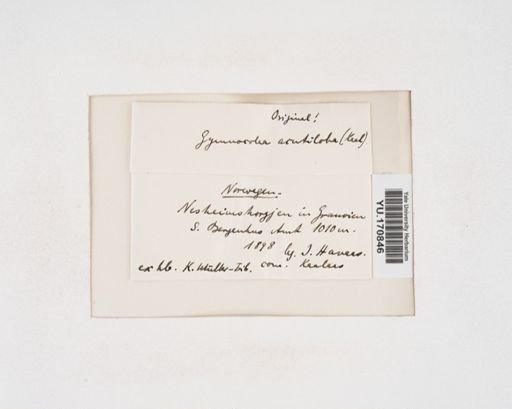 Original!
Gymnocolea acutiloba (Kaal)
Norwegen.
Nesheimshorgjen in Granvin
S. Bergenhus Amt 1010 m.
1898 lg. J. Havaas.
ex hb. K. Müller-Frib. com. Kaalaas
Yale University Herbarium
YU.170846